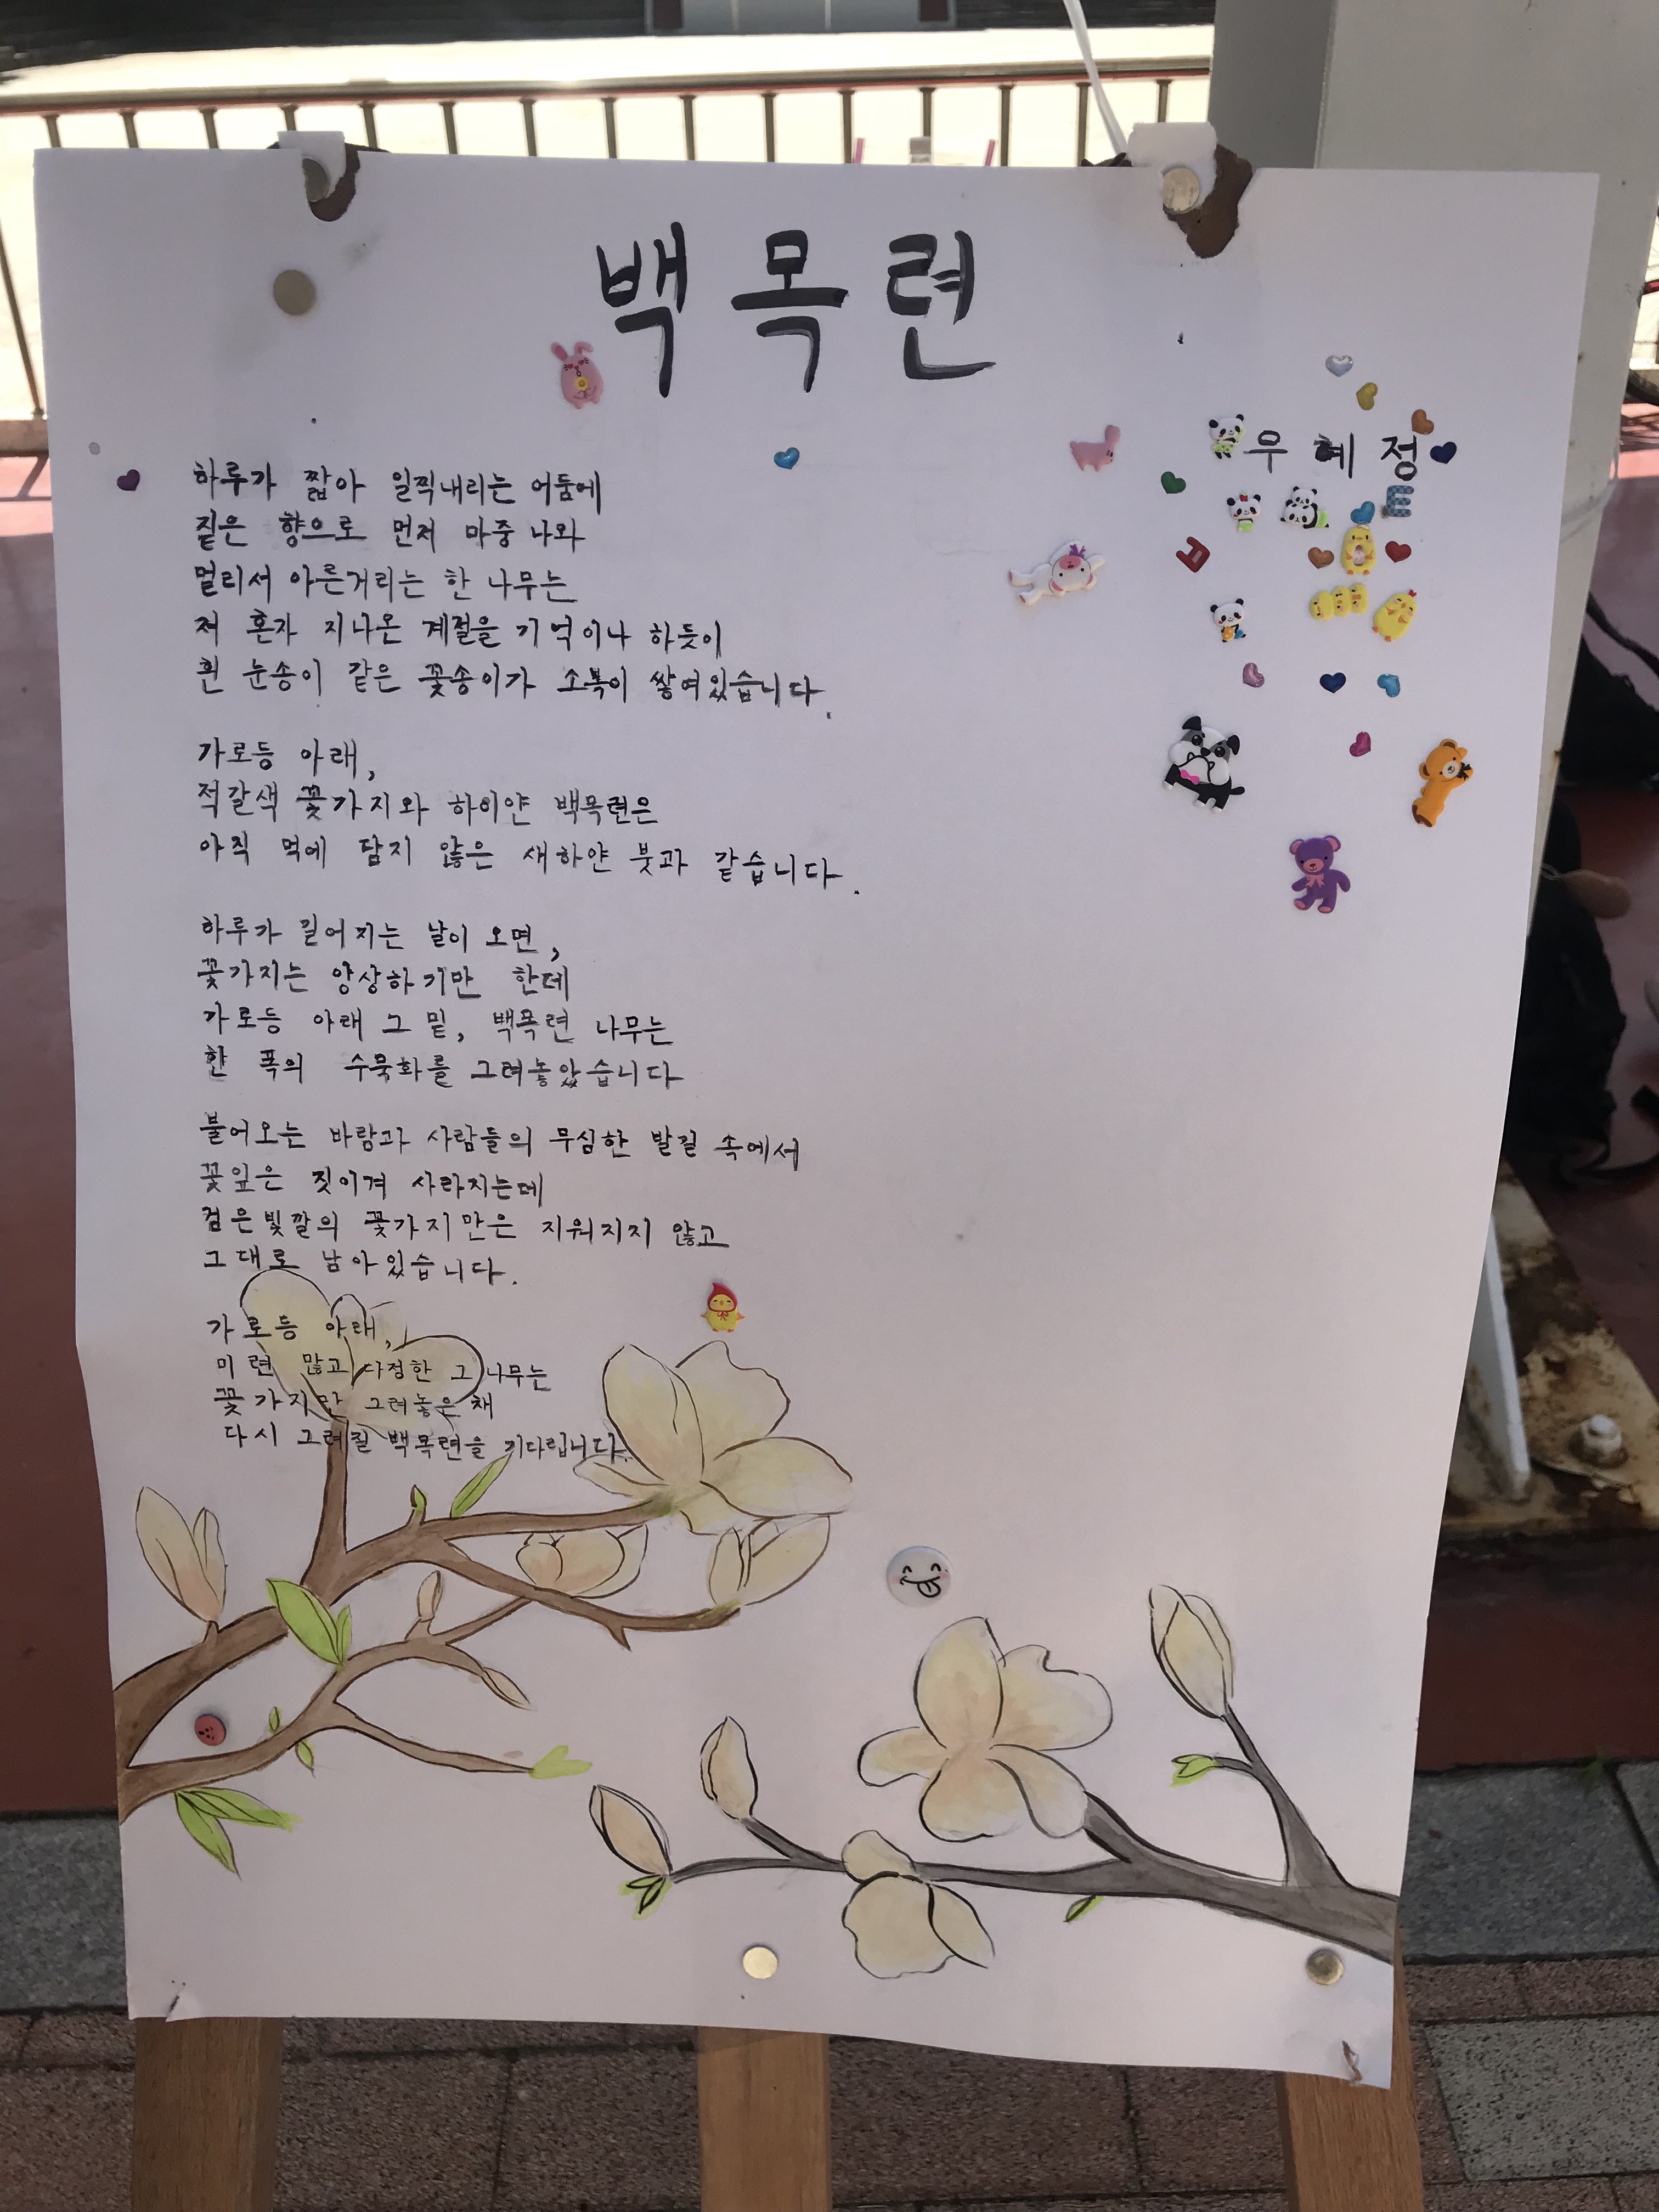 백목련
우혜정
하루가 짧아 일찍내리는 어둠에
짙은 향으로 먼저 마중 나와
멀리서 아른거리는 한 나무는
저 혼자 지나온 계절을 기억이나 하듯이
흰 눈송이 같은 꽃송이가 소복이 쌓여있습니다.
가로등 아래,
적갈색 꽃가지와 하이얀 백목련은
아직 먹에 담지 않은 새하얀 붓과 같습니다.
하루가 길어지는 날이 오면,
꽃가지는 앙상하기만 한데
가로등 아래 그 밑, 백목련 나무는
한 폭의 수묵화를 그려놓았습니다
불어오는 바람과 사람들의 무심한 발길 속에서
꽃잎은 짓이겨 사라지는데
검은빛깔의 꽃가지만은 지워지지 않고
그대로 남아있습니다.
가로등 아래,
미련 많고 다정한 그 나무는
꽃가지만 그려놓은 채
다시 그려질 백목련을 기다립니다.